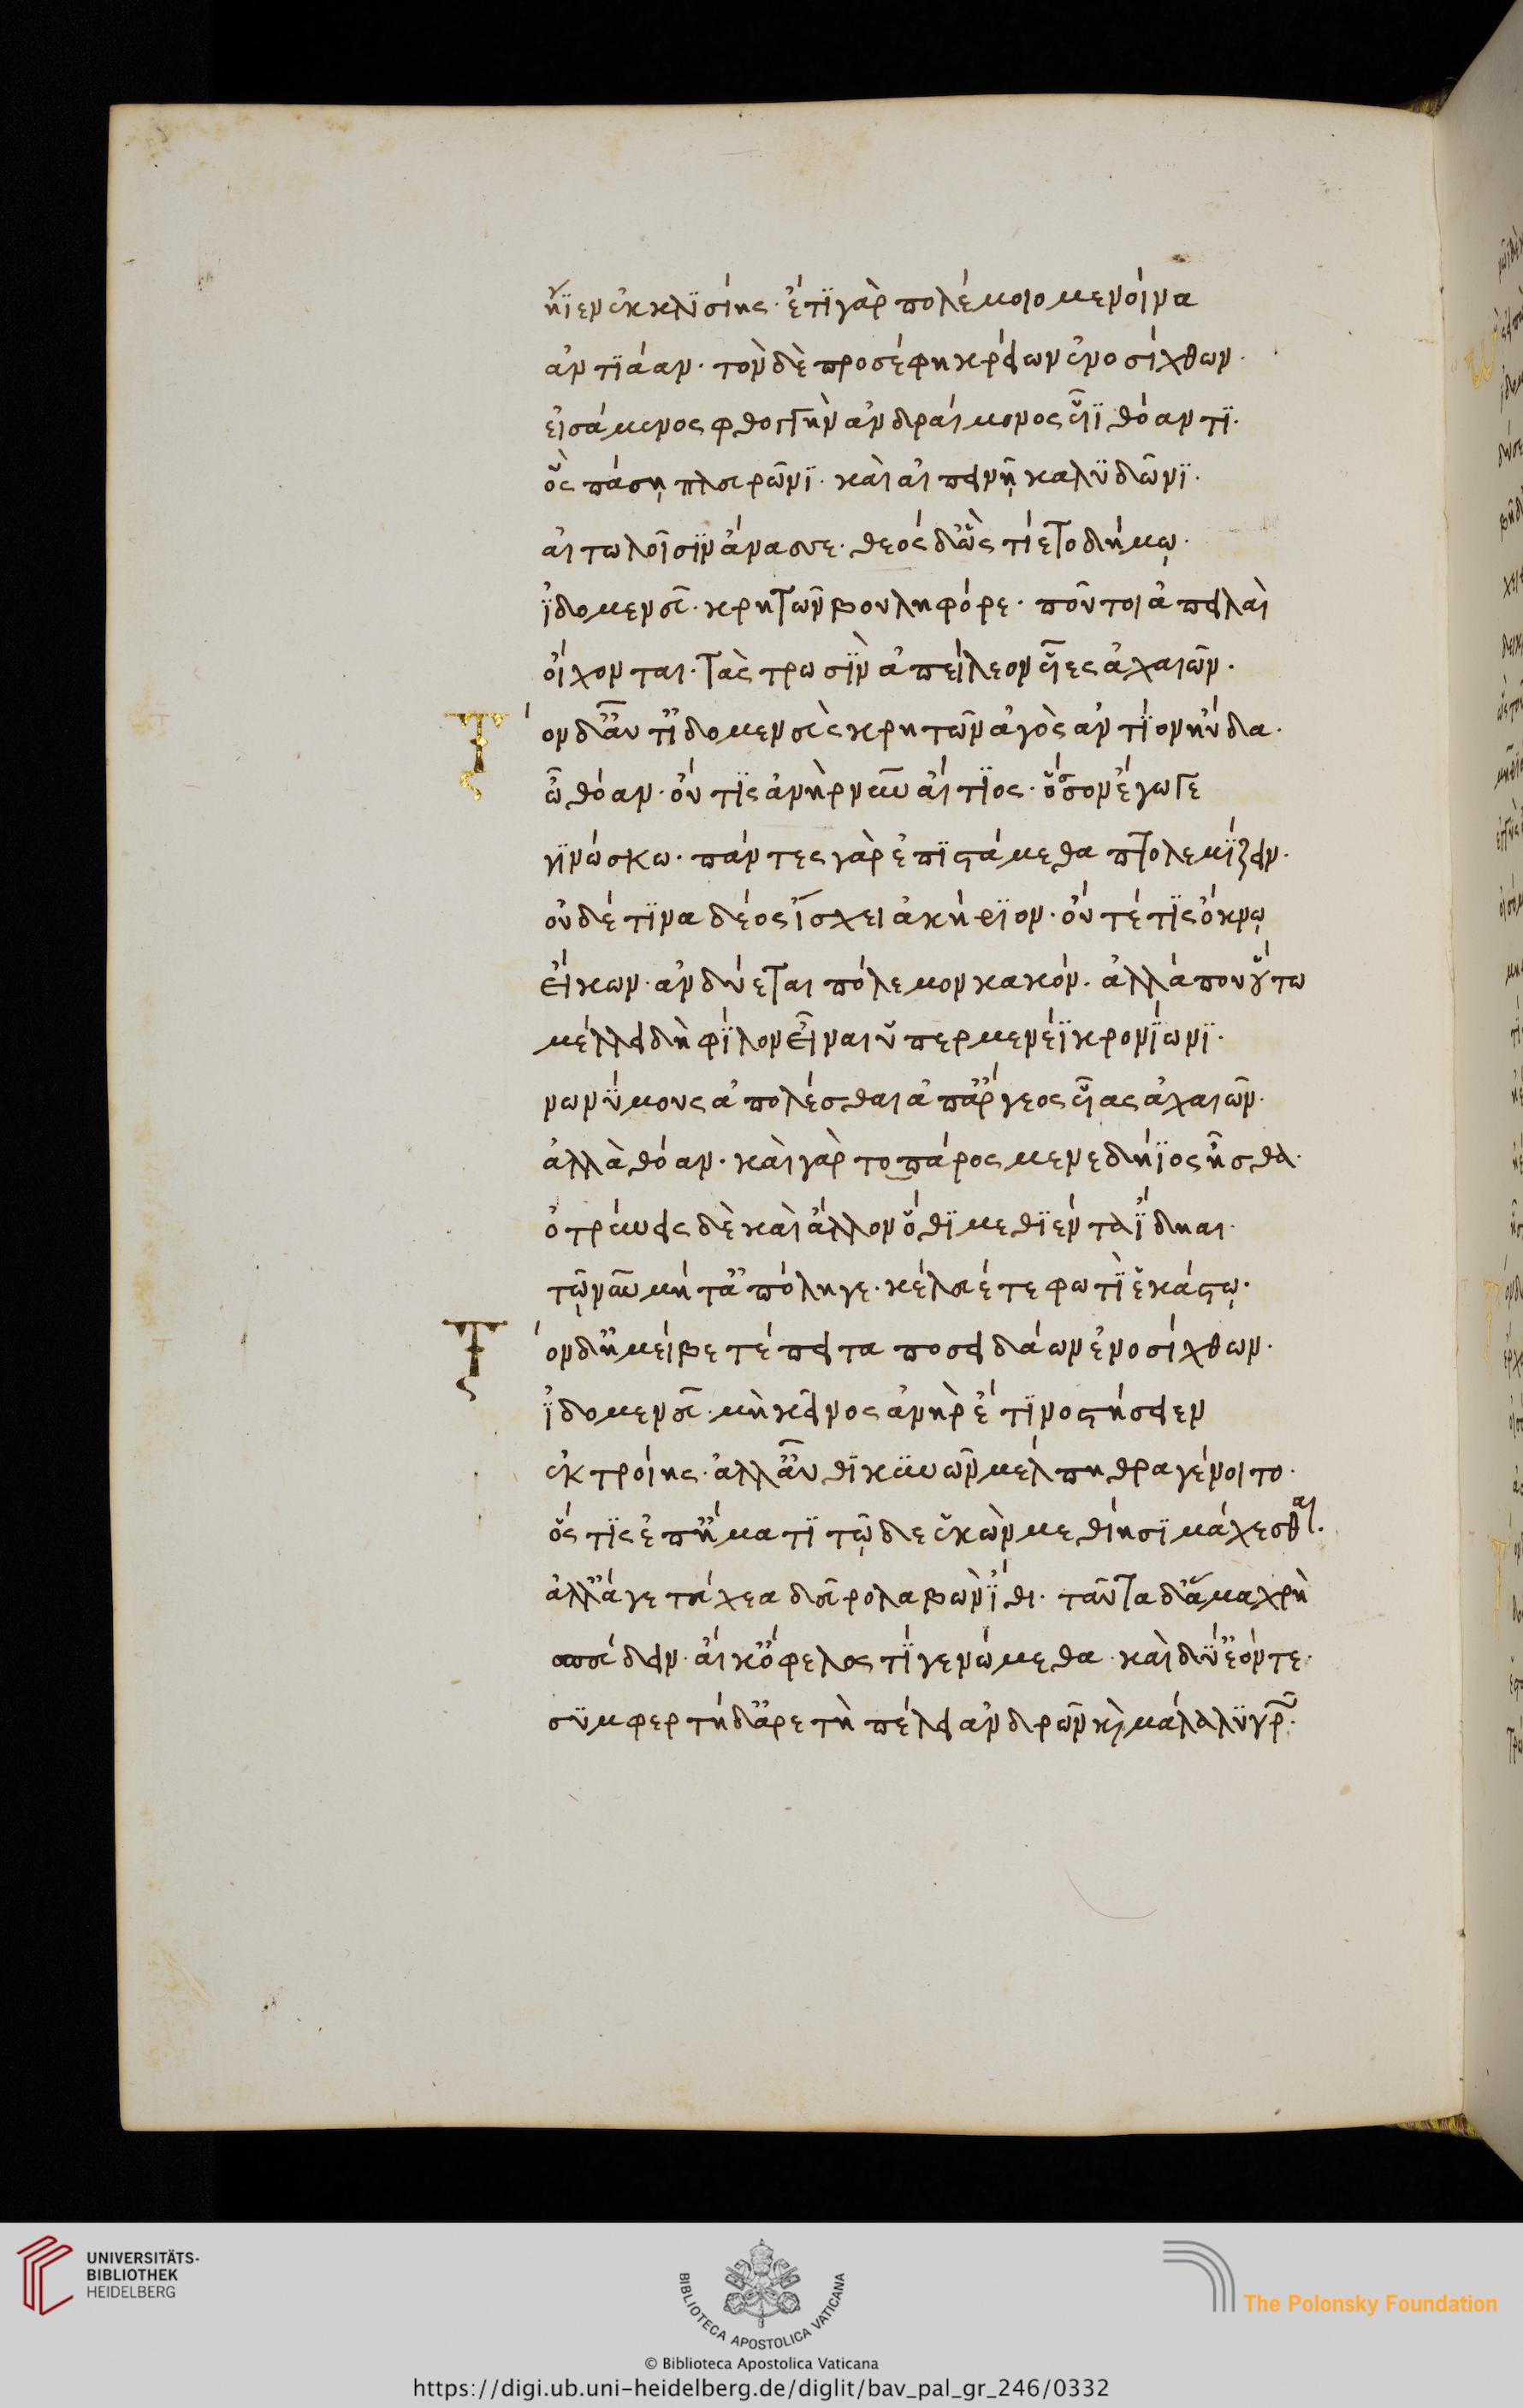 ἤϊεν ἐκ κλισίης· ἔτι γὰρ πολέμοιο μενοίνα
ἀντιάαν· τὸν δὲ προσέφη κρείων ἐνοσίχθων·
εἰσάμενος φθογγὴν ἀνδραίμονος υἷϊ θόαντι·
ὃς πάσῃ πλευρῶνι· καὶ αἰπεινῇ καλυδῶνι·
αἰτωλοῖσιν ἄνασσε· θεὸς δ' ὣς τίετο δήμῳ·
ἰδομενεῦ· κρητῶν βουληφόρε· ποῦ τοι ἀπειλαὶ
οἴχονται· τὰς τρωσὶν ἀπείλεον υἷες ἀχαιῶν·
Τὸν δ' αὖτ' ἰδομενεὺς κρητῶν ἀγὸς ἀντίον ηὔδα·
ὦ θόαν· οὔτις ἀνὴρ νῦν αἴτιος· ὅσσον ἔγωγε
γινώσκω· πάντες γὰρ ἐπιστάμεθα πτολεμίζειν·
οὐδέ τινα δέος ἴσχει ἀκήριον· οὔτέ τις ὄκνῳ
εἴκων· ἀνδύεται πόλεμον κακόν· ἀλλά που οὕτω
μέλλει δὴ φίλον εἶναι ὑπερμενέϊ κρονίωνι·
νωνύμους ἀπολέσθαι ἀπ' ἄργεος υἷας ἀχαιῶν·
ἀλλὰ θόαν· καὶ γὰρ τοπάρος μενεδήϊος ἦσθα·
ὀτρύνεις δὲ καὶ ἄλλον ὅθι μεθιέντα ἴδηαι·
τῶ νῦν μήτ' ἀπόληγε· κέλευέ τε φωτὶ ἑκάστῳ·
Τὸν δ' ἠμείβετ' ἔπειτα ποσειδάων ἐνοσίχθων·
ἰδομενεῦ· μὴ κεῖνος ἀνὴρ ἔτι νοστήσειεν
ἐκ τροίης· ἀλλ' αὖθι κυνῶν μέλπηθρα γένοιτο·
ὅς τις ἐπ' ἤματι τῷδε ἑκὼν μεθίησι μάχεσθαι·
ἀλλ' ἄγε τεύχεα δεῦρο λαβὼν ἴθι· ταῦτα δ' ἅμα χρὴ
σπεύδειν· αἴ κ' ὄφελός τι γενώμεθα καὶ δύ' ἐόντε·
συμφερτὴ δ' ἀρετὴ πέλει ἀνδρῶν κὶ μάλα λυγρῶν·
UNIVERSITÄTS-
BIBLIOTHEK
HEIDELBERG
BIBLIOTECA APOSTOLICA VATICANA
The Polonsky Foundation
© Biblioteca Apostolica Vaticana
https://digi.ub.uni-heidelberg.de/diglit/bav_pal_gr_246/0332